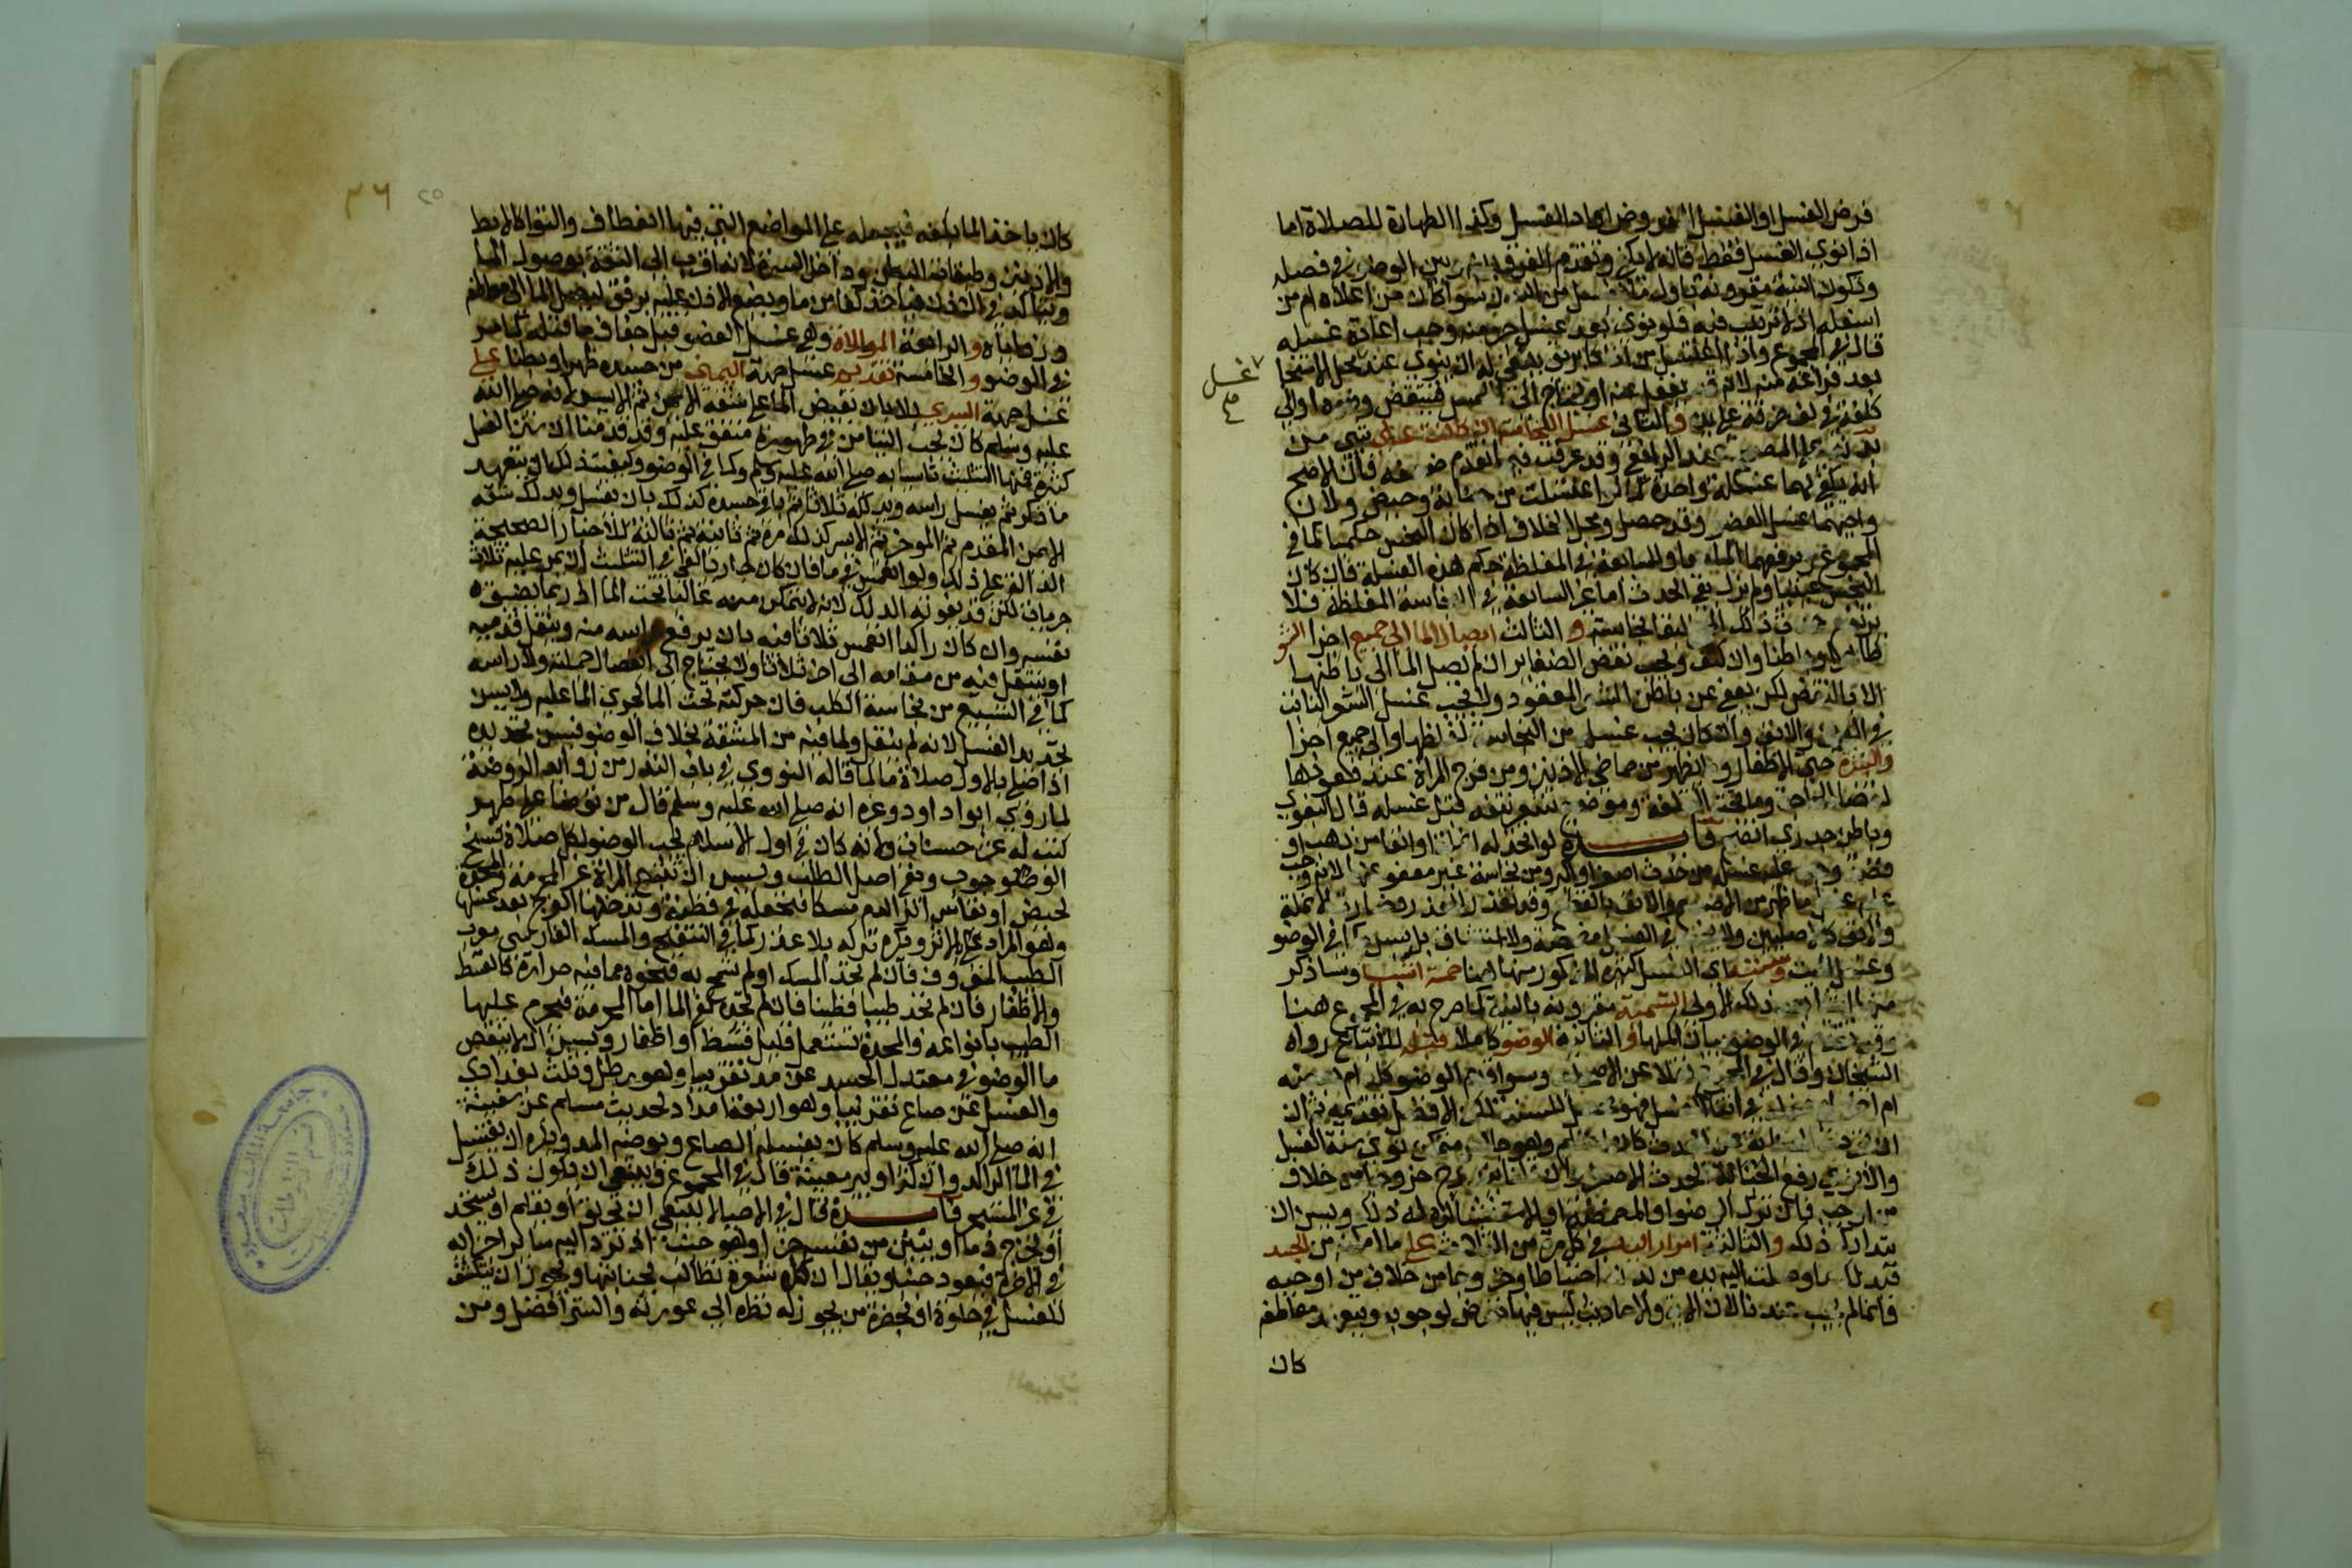 فرض الغسل او الغسل المفروض او اداء الغسل وكذا الطهارة للصلاة اما
اذا نوى الغسل فقط فانه لا يكفي وتقدم الفرق بينه وبين الوضوء في فصله
وتكون النية مقرونة باول ما يغسل من البدن سواء كان من اعلاه ام من
اسفله اذ لا ترتيب فيه فلو نوى بعد غسل جزء منه وجب اعادة غسله
قال في المجموع واذا اغتسل من اناء كابريق ينبغي له ان ينوي عند محل الاستنجا
بعد فراغه منه لانه قد يغفل عنه او يحتاج الى المس فينتقض وضوءه او الى
كلفة في لف خرقة على يده والثاني غسل النجاسة ان كانت على شي من
بدنه على المصحح عند الرافعي وقد عرفت فيما تقدم ضعفه فان الاصح
انه يكفي لهما غسلة واحدة كما لو اغتسلت من جنابة وحيض ولان
واجبهما غسل العضو وقد حصل ومحل الخلاف اذا كان النجس حكميا كما في
المجموع غير يرفعهما الماء معا وللسابعة في المغلظة حكم هذه الغسلة فان كان
النجس عينيا ولم يزل بقي الحدث اما غير السابعة في النجاسة المغلظة فلا
يرتفع حدث ذلك المحل لبقاء نجاسته والثالث ايصال الما الى جميع اجزا الشعر
ظاهرا وباطنا وان كثف ويجب نقض الضفاير ان لم يصل الما الى باطنها
الا بالنقض لكن يعفى عن باطن الشعر المعقود ولا يجب غسل الشعر النابت
في العين والانف وان كان يجب غسله من النجاسة لغلظها والى جميع اجزا
والبشرة حتى الاظفار وما يظهر من صماخي الاذنين ومن فرج المراة عند قعودها
لقضاء الحاجة وما تحت القلفة وموضع شعر نتفه قبل غسله قال البغوي
وباطن جدري اتضح فائدة لو اتخذ له انملة او انفا من ذهب او
فضة وجب عليه غسله من حدث اصغر او اكبر ومن نجاسة غير معفو عنها لانه وجب
عليه غسل ما ظهر من الاصبع والانف بالقطع وقد تعذر للعذر فصارت الانملة
والانف كالاصليين ولا يجب في الغسل مضمضة ولا استنشاق بل يسن كما في الوضو
وغسل الميت وسننه اي الغسل كثيرة المذكور منها هنا خمسة اشيا وساذكر
منها اشيا بعد ذلك الاولى التسمية مقرونة بالنية كما صرح به في المجموع هنا
وقد تقدم في الوضو بيان اكملها والثانية الوضو كاملا قبله للاتباع رواه
الشيخان وقال في المجموع نقلا عن الاصحاب وسوا قدم الوضو كله ام بعضه
ام اخره ام فعله في اثناء الغسل فهو محصل للسنة لكن الافضل تقديمه ثم ان
تجردت الجنابة عن الحدث كان احتلم وهو جالس متمكن نوى سنة الغسل
والا نوى رفع الحدث الاصغر وان قلنا يندرج خروجا من خلاف
من اوجبه فان ترك الوضوء او المضمضة او الاستنشاق كره له ذلك ويسن ان
يتدارك ذلك والثالثة امرار اليد في كل مرة من الثلاث على ما امكنه من الجسد
فيدلك ما وصلت اليه يده من بدنه احتياطا وخروجا من خلاف من اوجبه
وانما لم يجب عندنا لان الاية والاحاديث ليس فيها تعرض لوجوبه ويتعهد معاطفه
كان
غسل
صح
٣٦
٢٥
كان ياخذ الما بكفه فيجعله على المواضع التي فيها انعطاف والتوا كالابط
والاذنين وطبقات البطن وداخل السرة لانه اقرب الى الثقة بوصول الما
ويتاكد في الاذن فياخذ كفا من ما ويضع الاذن عليه برفق ليصل الما الى معاطفه
وزواياه والرابعة الموالاة وهي غسل العضو قبل جفاف ما قبله كما مر
في الوضو والخامسة تقديم غسل جهة اليمنى من جسده ظهرا وبطنا على
غسل جهة اليسرى بان يفيض الما على شقه الايمن ثم الايسر لانه صلى الله
عليه وسلم كان يحب التيامن في طهوره متفق عليه وقد قدمنا ان سنن الغسل
كثيرة منها التثليث تاسيا به صلى الله عليه وسلم وكما في الوضو وكيفية ذلك ان يتعهد
ما ذكر ثم يغسل راسه ويدلكه ثلاثا ثم باقي جسده كذلك بان يغسل ويدلك شقه
الايمن المقدم ثم الموخر ثم الايسر كذلك مرة ثم ثانية ثم ثالثة للاخبار الصحيحة
الدالة على ذلك ولو انغمس في ما فان كان جاريا كفى في التثليث ان يمر عليه ثلاث
جريات لكن قد يفوته الدلك لانه لا يتمكن منه غالبا تحت الما اذ ربما يضيق
نفسه وان كان راكدا انغمس ثلاثا فيه بان يرفع راسه منه وينقل قدميه
او ينتقل فيه من مقامه الى اخر ثلاثا ولا يحتاج الى انفصال جملته ولا راسه
كما في التسبيع من نجاسة الكلب فان حركته تحت الما كجري الما عليه ولا يسن
تجديد الغسل لانه لم ينقل ولما فيه من المشقة بخلاف الوضو فيسن تجديده
اذا صلى بالاول صلاة ما كما قاله النووي في باب النذر من زوائد الروضة
لما روى ابو داود وغيره انه صلى الله عليه وسلم قال من توضا على طهر
كتب له عشر حسنات ولانه كان في اول الاسلام يجب الوضو لكل صلاة فنسخ
الوجوب وبقي اصل الطلب ويسن ان تتبع المراة غير المحرمة والمحدة
لحيض او نفاس اثر الدم مسكا فتجعله في قطنة وتدخلها الفرج بعد غسلها
وهو المراد بالاثر ويكره تركه بلا عذر كما في التنقيح والمسك الفارسي معرب
الطيب المعروف فان لم تجد المسك او لم تسمح به فنحوه مما فيه حرارة كالقسط
والاظفار فان لم تجد طيبا فطينا فان لم تجده كفى الما اما المحرمة فيحرم عليها
الطيب بانواعه والمحدة تستعمل قليل قسط او اظفار ويسن ان لا ينقص
ما الوضو في معتدل الجسد عن مد تقريبا وهو رطل وثلث بغدادي
والغسل عن صاع تقريبا وهو اربعة امداد لحديث مسلم عن سفينة
انه صلى الله عليه وسلم كان يغسله الصاع ويوضيه المد ويكره ان يغتسل
في الما الراكد وان كثر او بير معينة قال في المجموع وينبغي ان يكون ذلك
في غير المستبحر فائدة قال في الاحيا لا ينبغي ان يحلق او يقلم او يستحد
او يخرج دما او يبين من نفسه جزا وهو جنب اذ ترد اليه ساير اجزائه
في الاخرة فيعود جنبا ويقال ان كل شعرة تطالب بجنابتها ويجوز ان ينكشف
للغسل في خلوة او بحضرة من يجوز له نظره الى عورته والستر افضل ومن